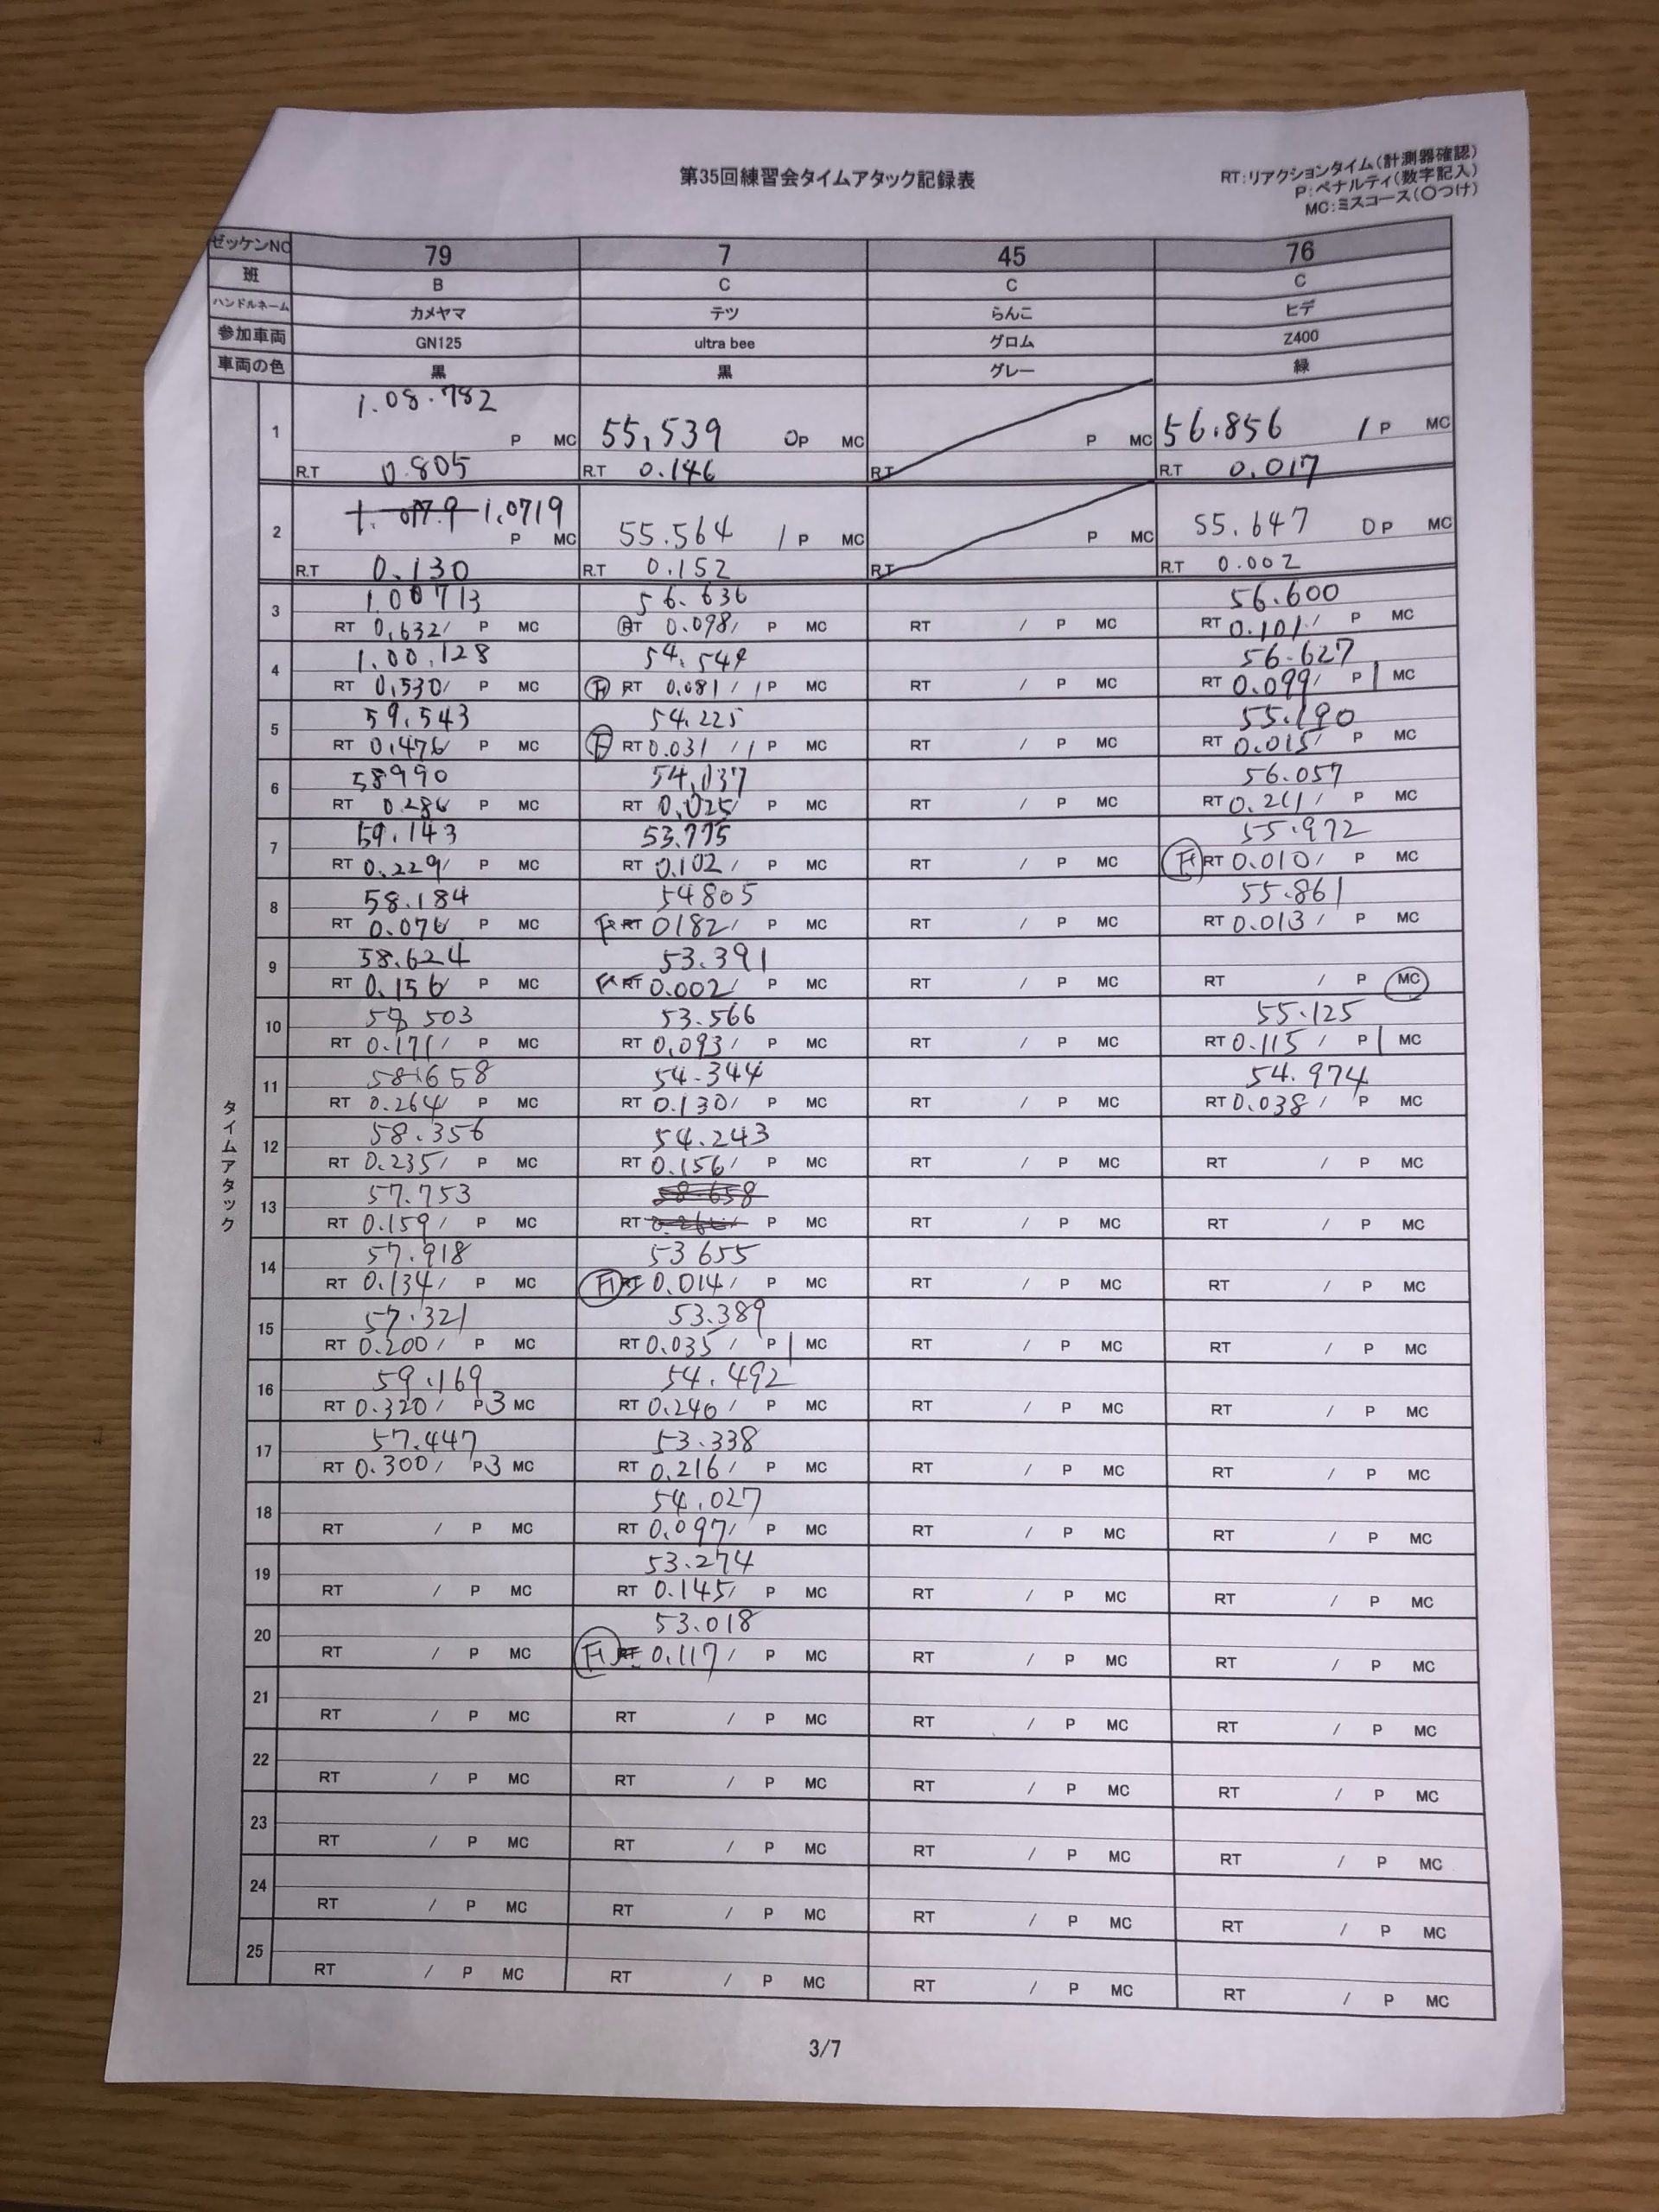 第35回練習会タイムアタック記録表
RT:リアクションタイム(計測器確認)
P:ペナルティ(数字記入)
MC:ミスコース(〇つけ)
ゼッケンNO 79 7 45 76
班 B C C C
ハンドルネーム カメヤマ テツ らんこ ヒデ
参加車両 GN125 ultra bee グロム Z400
車両の色 黒 黒 グレー 緑
タイムアタック
1 1.08.782 P MC 55,539 0P MC P MC 56.856 1P MC
R.T 0.805 R.T 0.146 R.T R.T 0.017
2 1.0719 P MC 55.564 1P MC P MC 55.647 0P MC
R.T 0.130 R.T 0.152 R.T R.T 0.002
3 1.00713 56.636 56.600
RT 0.632/ P MC RT 0.098/ P MC RT / P MC RT 0.101/ P MC
4 1.00.128 54.549 56.627
RT 0.530/ P MC F RT 0.081 / 1P MC RT / P MC RT 0.099/ P1 MC
5 59.543 54.225 55.190
RT 0.476/ P MC F RT 0.031 / 1P MC RT / P MC RT 0.015/ P MC
6 58990 54.037 56.057
RT 0.286 P MC RT 0.025/ P MC RT / P MC RT 0.261/ P MC
7 59.143 53.775 55.972
RT 0.229/ P MC RT 0.102/ P MC RT / P MC F RT 0.010/ P MC
8 58.184 54805 55.861
RT 0.076/ P MC F RT 0182/ P MC RT / P MC RT 0.013/ P MC
9 58.624 53.391
RT 0.156/ P MC F RT 0.002/ P MC RT / P MC RT / P MC
10 58 503 53.566 55.125
RT 0.171/ P MC RT 0.093/ P MC RT / P MC RT 0.115 / P1 MC
11 58.658 54.344 54.974
RT 0.264/ P MC RT 0.130/ P MC RT / P MC RT 0.038/ P MC
12 58.356 54.243
RT 0.235/ P MC RT 0.156/ P MC RT / P MC RT / P MC
13 57.753 58.658
RT 0.159/ P MC RT P MC RT / P MC RT / P MC
14 57.918 53655
RT 0.134/ P MC F RT 0.014/ P MC RT / P MC RT / P MC
15 57.321 53.389
RT 0.200/ P MC RT 0.035 / P1 MC RT / P MC RT / P MC
16 59.169 54.492
RT 0.320/ P3 MC RT 0.240/ P MC RT / P MC RT / P MC
17 57.447 53.338
RT 0.300/ P3 MC RT 0.216/ P MC RT / P MC RT / P MC
18 54.027
RT / P MC RT 0.097/ P MC RT / P MC RT / P MC
19 53.274
RT / P MC RT 0.145/ P MC RT / P MC RT / P MC
20 53.018
RT / P MC F RT 0.117/ P MC RT / P MC RT / P MC
21
RT / P MC RT / P MC RT / P MC RT / P MC
22
RT / P MC RT / P MC RT / P MC RT / P MC
23
RT / P MC RT / P MC RT / P MC RT / P MC
24
RT / P MC RT / P MC RT / P MC RT / P MC
25
RT / P MC RT / P MC RT / P MC RT / P MC
3/7